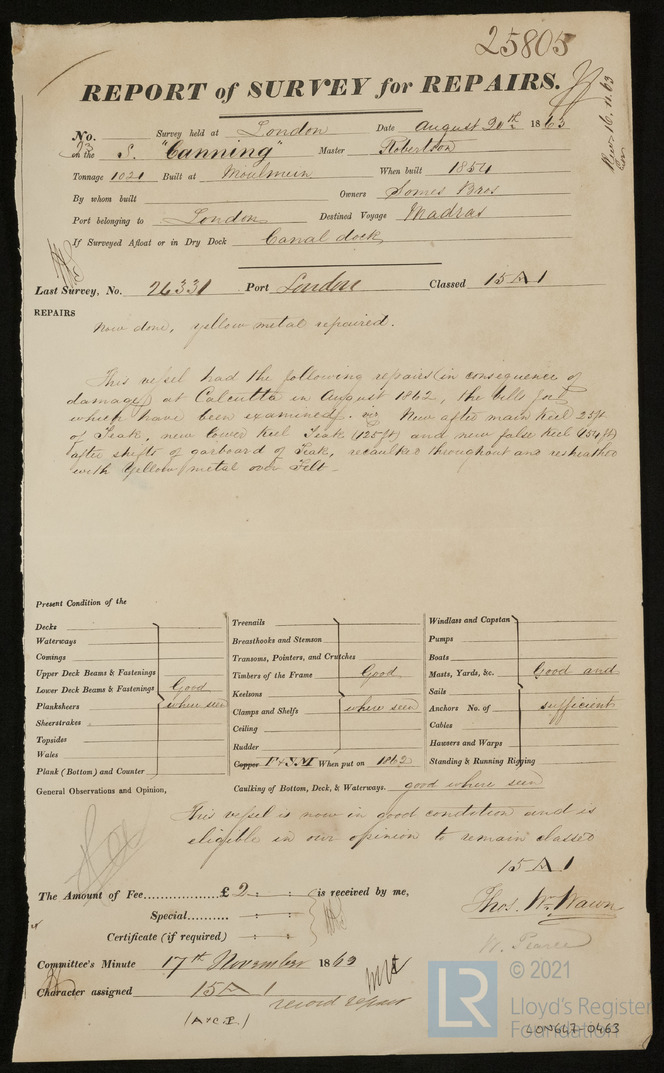 25805
REPORT of SURVEY for REPAIRS.
No. Survey held at London Date August 20th 1863
23 on the S. "Canning" Master Robertson
Tonnage 1021 Built at Moulmein When built 1854
By whom built Owners Somes Bros
Port belonging to London Destined Voyage Madras
If Surveyed Afloat or in Dry Dock Canal dock
Last Survey, No. 26331 Port London Classed 15 A 1
REPAIRS
Now done, yellow metal repaired.
This vessel had the following repairs (in consequence of
damage) at Calcutta in August 1862, the bills for
which have been examined. viz New after main keel 25ft
of Teak, new lower keel Teak (125ft) and new false keel (154ft)
after shifts of garboard of Teak, recaulked throughout and resheathed
with Yellow metal over Felt -
Present Condition of the
Decks
Waterways
Comings
Upper Deck Beams & Fastenings
Lower Deck Beams & Fastenings Good
Planksheers where seen
Sheerstrakes
Topsides
Wales
Plank (Bottom) and Counter
Treenails
Breasthooks and Stemson
Transoms, Pointers, and Crutches
Timbers of the Frame Good
Keelsons
Clamps and Shelfs where seen
Ceiling
Rudder
Copper F & Y.M When put on 1862
Windlass and Capstan
Pumps
Boats
Masts, Yards, &c. Good and
Sails
Anchors No. of sufficient
Cables
Hawsers and Warps
Standing & Running Rigging
General Observations and Opinion, Caulking of Bottom, Deck, & Waterways. good where seen
This vessel is now in good condition and is
eligible in our opinion to remain classed
15 A 1
The Amount of Fee £ 2 : : is received by me,
Special : :
Certificate (if required) : :
Thos. Wm. Wawn
W. Pearce
Committee's Minute 17th November 1863
Character assigned 15 A 1
record repair
(A & C P)
LR
© 2021
Lloyd's Register
Foundation
LON647-0463